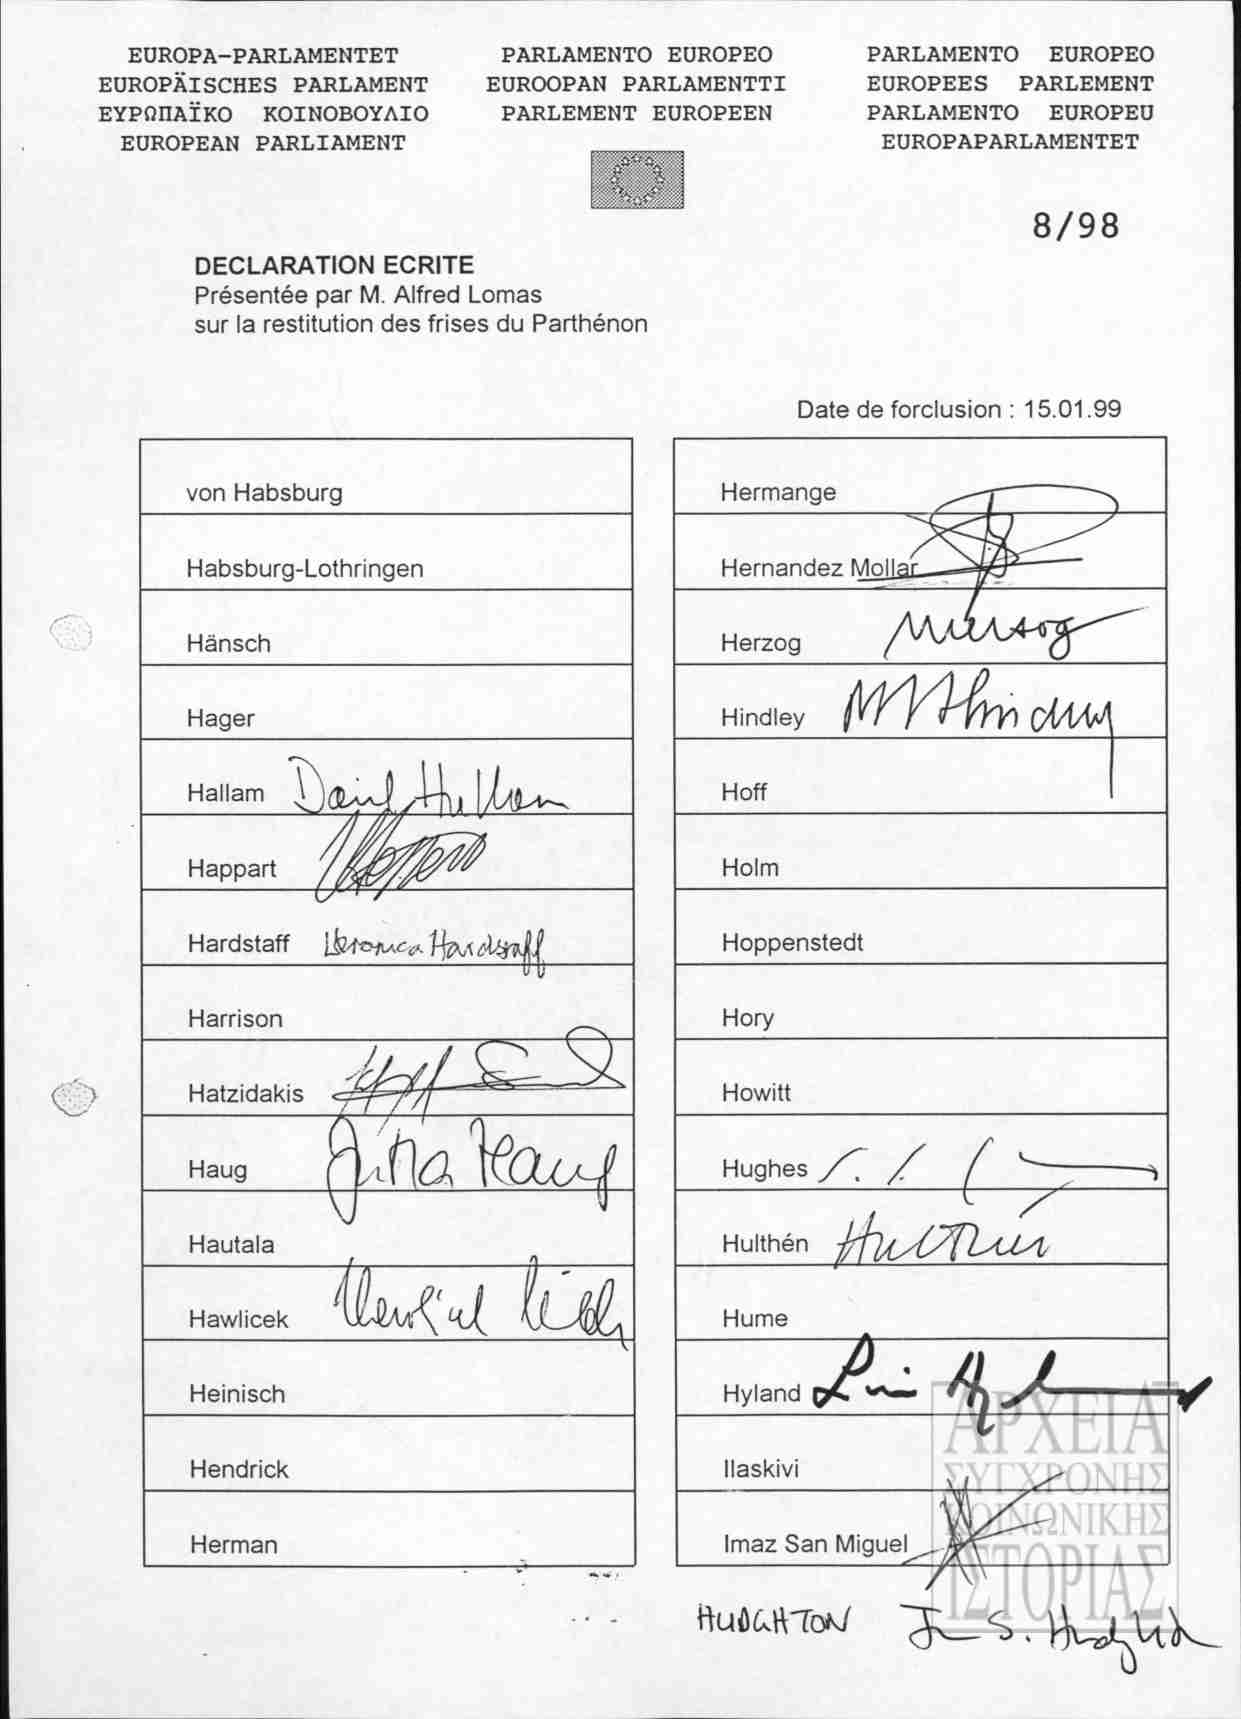 EUROPA-PARLAMENTET
EUROPÄISCHES PARLAMENT
ΕΥΡΩΠΑΪΚΟ ΚΟΙΝΟΒΟΥΛΙΟ
EUROPEAN PARLIAMENT
PARLAMENTO EUROPEO
EUROOPAN PARLAMENTTI
PARLEMENT EUROPEEN
PARLAMENTO EUROPEO
EUROPEES PARLEMENT
PARLAMENTO EUROPEU
EUROPAPARLAMENTET
8/98
DECLARATION ECRITE
Présentée par M. Alfred Lomas
sur la restitution des frises du Parthénon
Date de forclusion : 15.01.99
von Habsburg
Habsburg-Lothringen
Hänsch
Hager
Hallam David Hallam
Happart
Hardstaff Veronica Hardstaff
Harrison
Hatzidakis
Haug Jutta Haug
Hautala
Hawlicek
Heinisch
Hendrick
Herman
Hermange
Hernandez Mollar
Herzog
Hindley
Hoff
Holm
Hoppenstedt
Hory
Howitt
Hughes
Hulthén Hulthén
Hume
Hyland
Ilaskivi
Imaz San Miguel
HUDGHTON
ΑΡΧΕΙΑ
ΣΥΓΧΡΟΝΗΣ
ΚΟΙΝΩΝΙΚΗΣ
ΙΣΤΟΡΙΑΣ